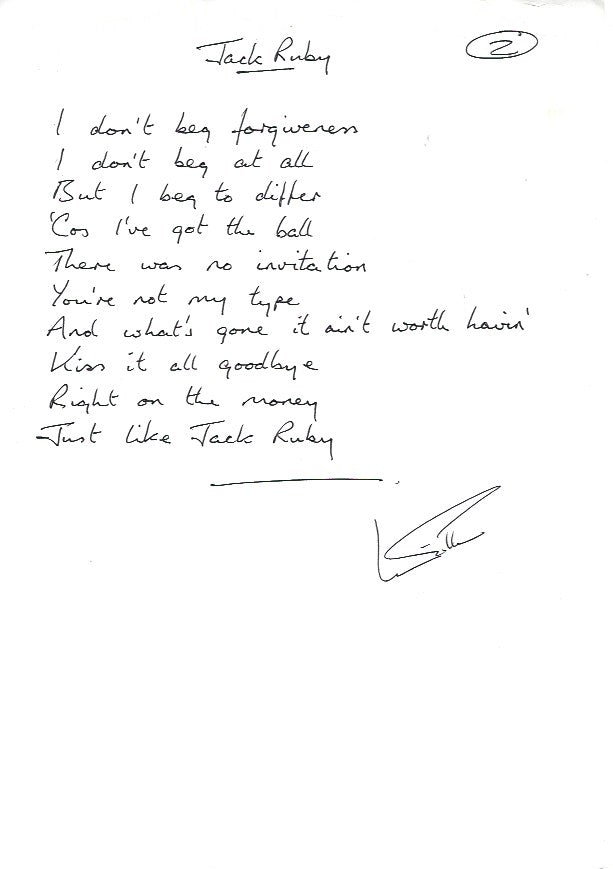 Jack Ruby
2
I don't beg forgiveness
I don't beg at all
But I beg to differ
'Cos I've got the ball
There was no invitation
You're not my type
And what's gone it ain't worth havin'
Kiss it all goodbye
Right on the money
Just like Jack Ruby